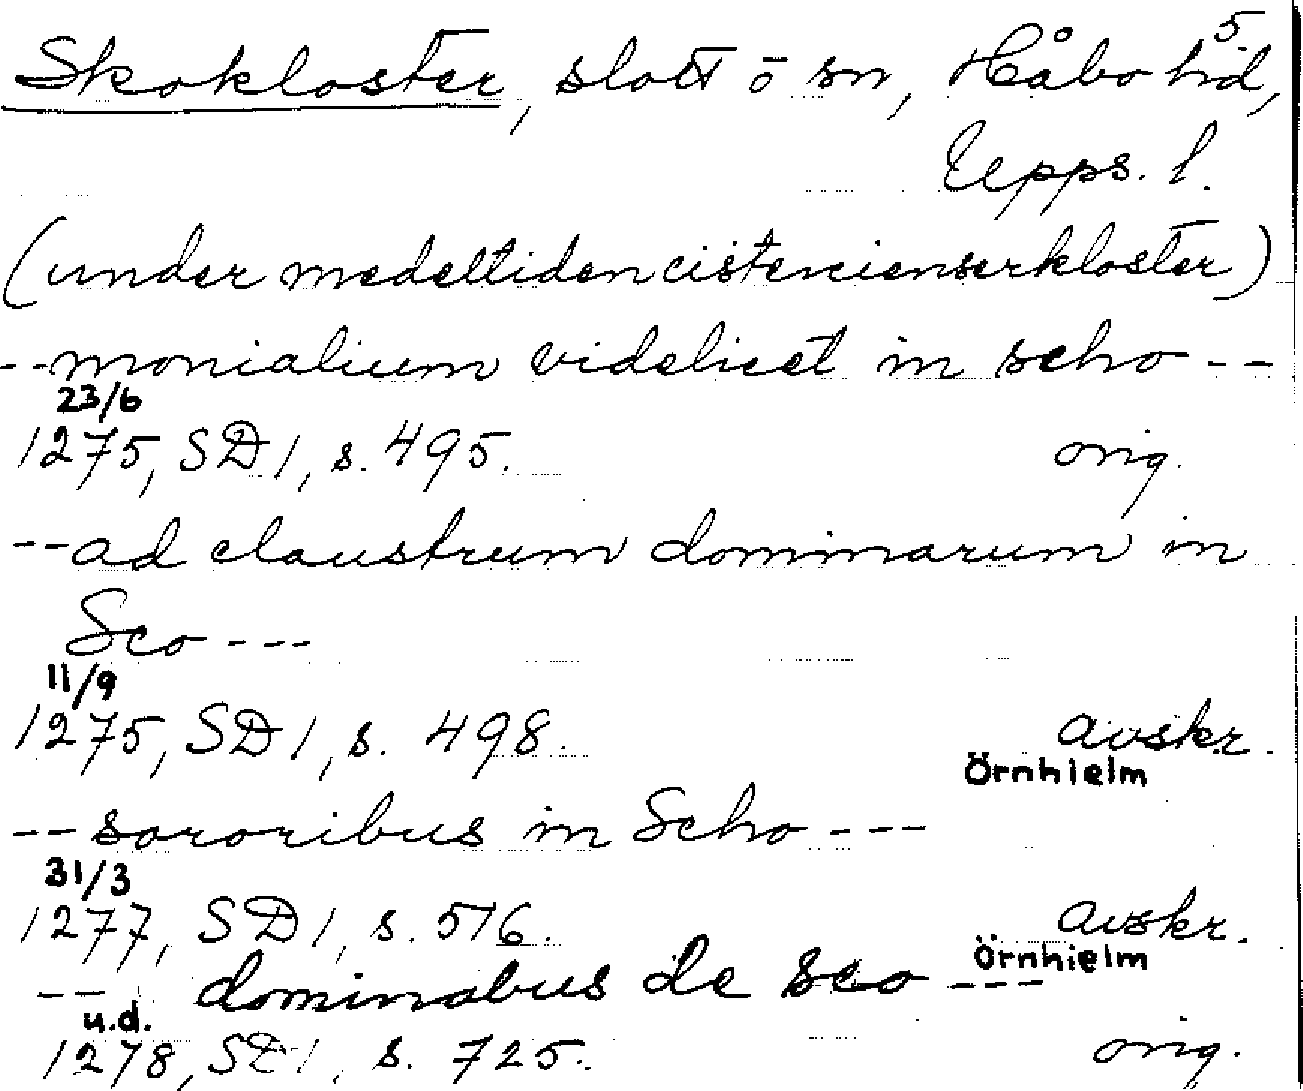 5.
Skokloster, slott o sn, Håbo hd,
Upps. l.
(under medeltiden cistercienserkloster)
-- monialium videlicet in scho --
23/6
1275, SD 1, s. 495. orig.
-- ad claustrum dominarum in
Sco ---
11/9
1275, SD 1, s. 498. avskr.
Örnhielm
-- sororibus in Scho ---
31/3
1277, SD 1, s. 516. avskr.
Örnhielm
-- dominabus de sco ---
u.d.
1278, SD 1, s. 725. orig.